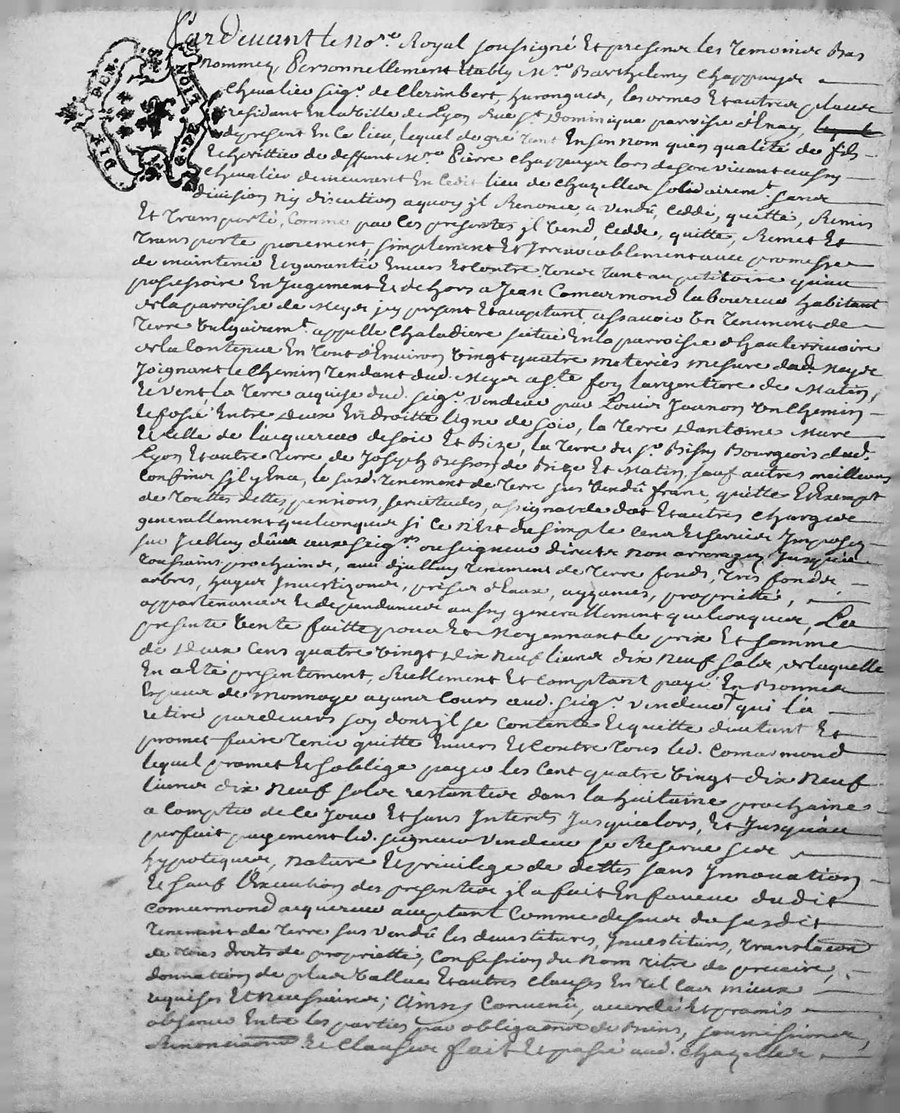 Pardevant le no.re Royal soussigné Et presens les temoins Bas
nommez Personnellement Etably m.re Barthelemy Chappuys
Chevalier seig.r de Clerimbert, hurongues, les ormes Et autres places
résidant En la ville de Lyon rue s.t Dominique paroisse d'Enay,
de present En ce lieu, lequel de gré tant En son nom qu'en qualité de fils
Et heritier de deffunt m.re Pierre chappuys lors de son vivant aussy
Chevalier demeurant En cedit lieu de chazelles solidairem.t sans
division ny discution aquoy il Renonce, a vendû, Ceddé, quitté, Remis
Et transporté, Comme par ces presentes il vend, Cedde, quitte, Remet Et
transporte purement, simplement Et Irrevocablement avec promesse
de maintenir Et garantir Envers Et contre tous tant au petitoire qu'au
possessoire En Jugement Et dehors a Jean Comarmond laboureur habitant
de la paroisse de Meys icy present Et acceptant assavoir Un tenement de
terre vulgairem.t appellé Chaladiere scitué En la paroisse d'hauterivoire
de la Contenue En tout d'Environ vingt quatre meteries mesure dud. Meys
Joignant le Chemin tendant dud. Meys a s.te foy l'argentiere de Matin,
Et vent la terre acquise dud. seig.r vendeur par Louis Joanon Un Chemin
Et fossé Entre deux En droitte ligne de soir, la terre d'antoine Mure
Et celle de l'acquereur de soir Et Bize, la terre du s.r Bissy Bourgeois dud.
Lyon Et autre terre de Joseph Besson de Bize Et Matin, sauf autres meilleurs
Confins s'il y En a, le susd. tenement de terre sus vendû franc, quitte Et Exempt
de touttes dettes, pensions, servitudes, assignat de dot Et autres charges
generallement quelconques si ce n'Est du simple cens Et servis Imposez
sur Jcelluy dûs aux seig.rs ou seigneur directs non arreragez Jusqu'à la
toussaint prochaine, avec d'jcelluy tenement de terre fonds, tres fonds
arbres, hayes Investizons, prises d'Eaux, aizances, proprieté,
appartenances Et dependances aussy generallement quelconques, La
presente vente faitte pour Et Moyennant le prix Et somme
de Deux Cens quatre vingt Dix Neuf livres dix Neuf sols, de laquelle
En a Eté presentement, Reellement Et comptant payé En Bonnes
Especes de Monnoye ayans Cours aud. seig.r vendeur qui l'a
retiré pardevers soy dont il se contente Et quitte d'autant Et
promet faire tenir quitte Envers Et contre tous led. Comarmond
lequel promet Et s'oblige payer les Cent quatre vingt dix Neuf
livres dix Neuf sols restantes dans la huitaine prochaine
a Compter de Ce Jour Et sans Interets Jusqu'alors, Et Jusqu'au
parfait payement led. seigneur vendeur se Reserve ses
hypoteques, nature Et privilege de dettes sans Innovation
Et sauf l'Execution des presentes il a fait En faveur dudit
Comarmond acquereur acceptant Comme dessus du susdit
tenement de terre sus vendû les devestitures, Investitures, translation
de tous droits de proprietté, Confession du Nom titre de precaire,
donnation de plus vallue Et autres clauses En tel cas mieux
requises Et Necessaires; Ainsy Convenû, accordé Et promis
observer Entre les parties par obligation de Biens, soumissions,
Renonciations Et Clauses fait Et passé aud. Chazelles